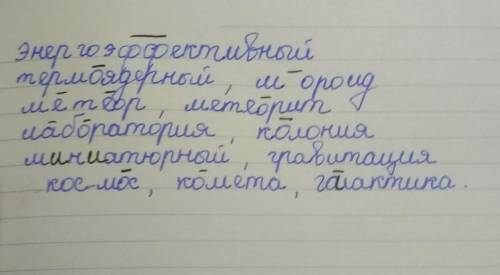 энергоэффективный
термоядерный, м ороид
метеор, метеорит
лаборатория, колония
миниатюрный, гравитация
космос, комета, галактика.